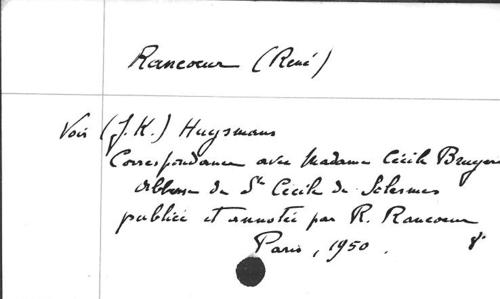 Rancoeur (René)
Voir (J.K.) Huysmans
Correspondance avec Madame Cécile Bruyère
Abbesse de Ste Cecile de Solesmes
publiée et annotée par R. Rancoeur
Paris, 1950. 8°